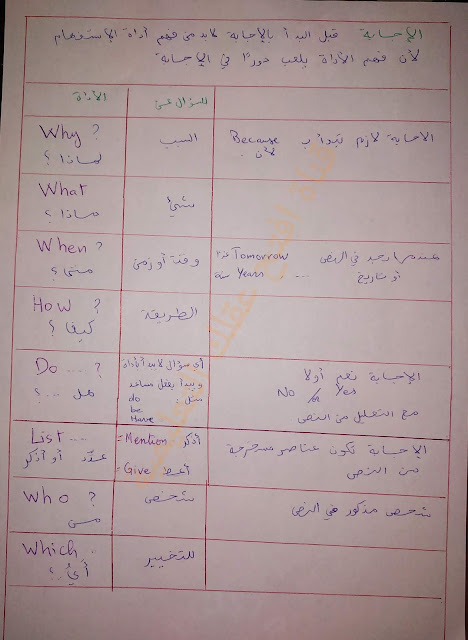 الإجابة قبل البدأ بالإجابة لابد من فهم أداة الإستفهام
لأن فهم الأداة يلعب دورًا في الإجابة
الأداة
للسؤال عن
Why ?
لماذا ؟
السبب
الاجابة لازم تبدأ ب Because
لأن
What
ماذا ؟
شيئ
When ?
متى ؟
وقت أو زمن
Tomorrow غدا
Years سنة
في النص
أو تاريخ
How ?
كيف ؟
الطريقة
Do .... ?
هل ... ؟
أي سؤال لا يبدأ بأداة
ويبدأ بفعل مساعد
مثل :
do
be
Have
الإجابة نعم أولا
No أو Yes
مع التعليل من النص
List ....
عدّد أو أذكر
أذكر : Mention =
أعط : Give =
الإجابة تكون عناصر
من النص
Who ?
من
شخص
شخص مذكور في النص
Which .
أيُّ .. ؟
للتخيير